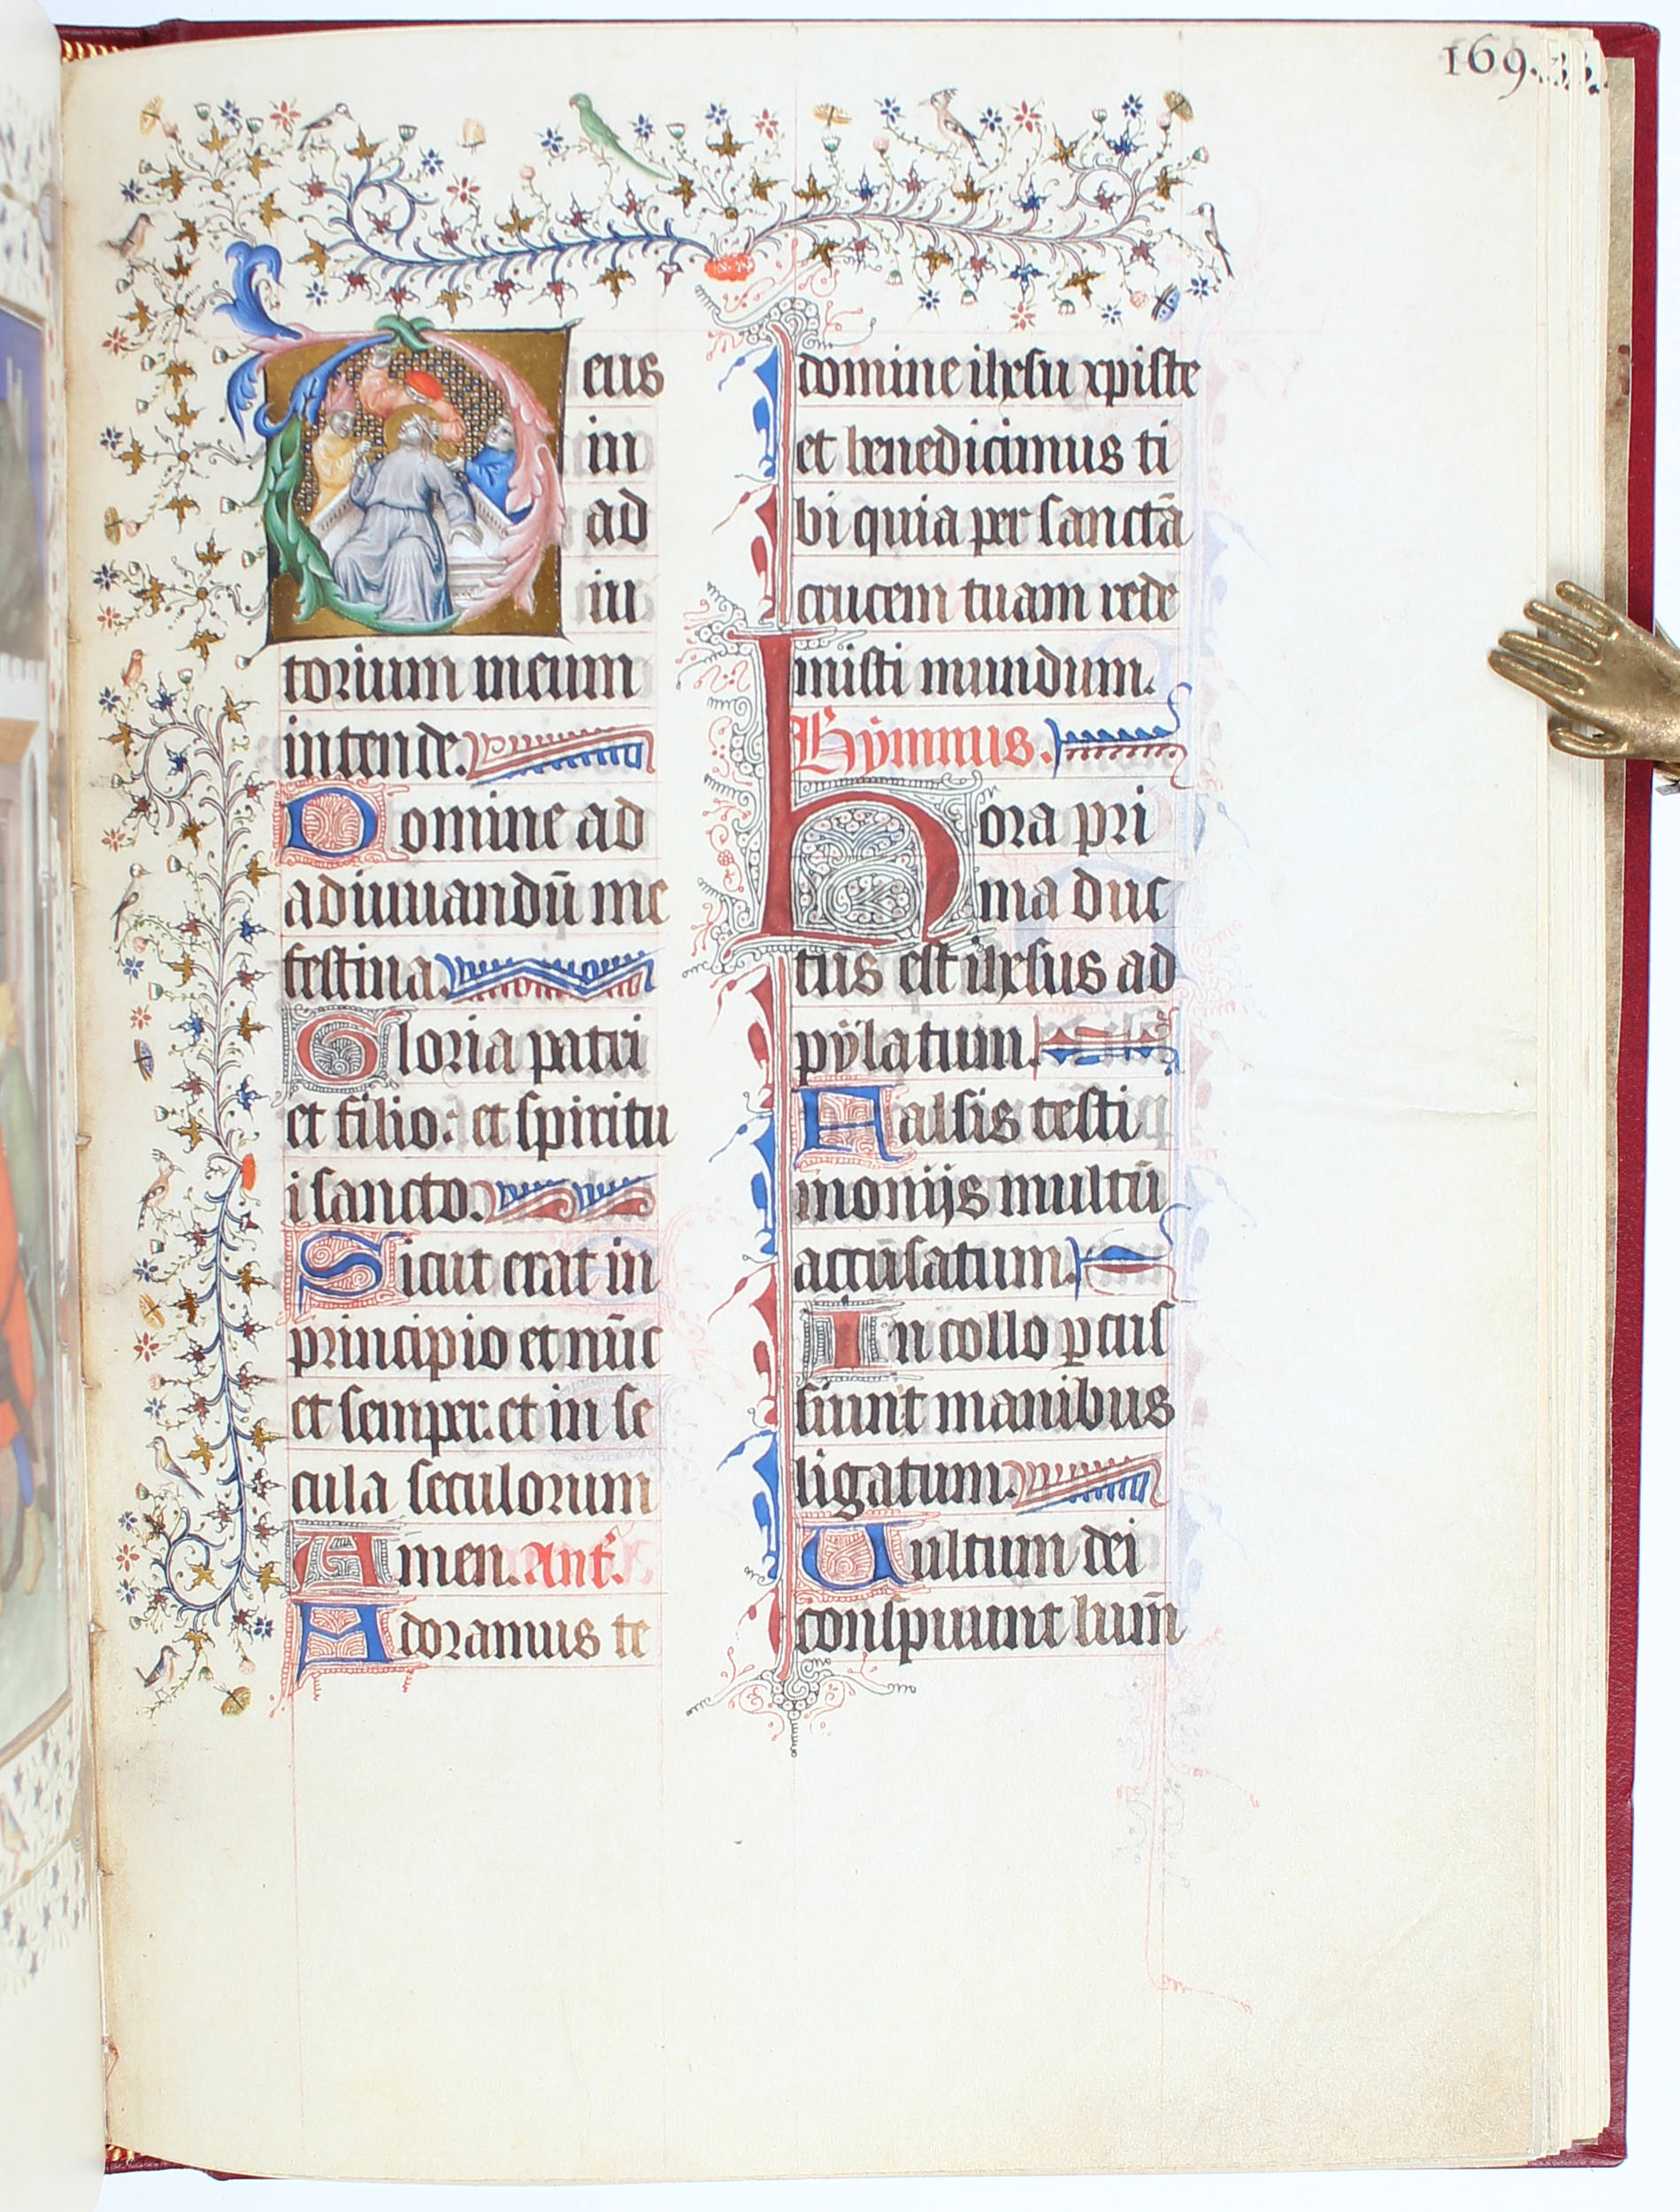 169.
Deus
in
ad
iu
torium meum
intende.
Domine ad
adiuuandū me
festina.
Gloria patri
et filio: et spiritu
i sancto.
Sicut erat in
principio et nūc
et semper: et in se
cula seculorum
Amen. Ant.
Adoramus te
domine ihesu xpiste
et benedicimus ti
bi quia per sanctā
crucem tuam rede
misti mundum.
Hÿmnus.
hora pri
ma duc
tus est ihesus ad
pÿlatum.
Falsis testi
moniis multū
accusatum.
In collo ꝑcus
siunt manibus
ligatum.
Uultum dei
conspuunt lumē